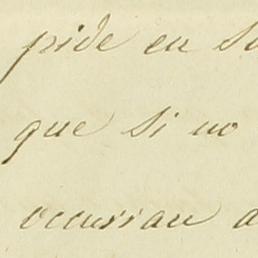 pide en su
que si no
ocurrian a